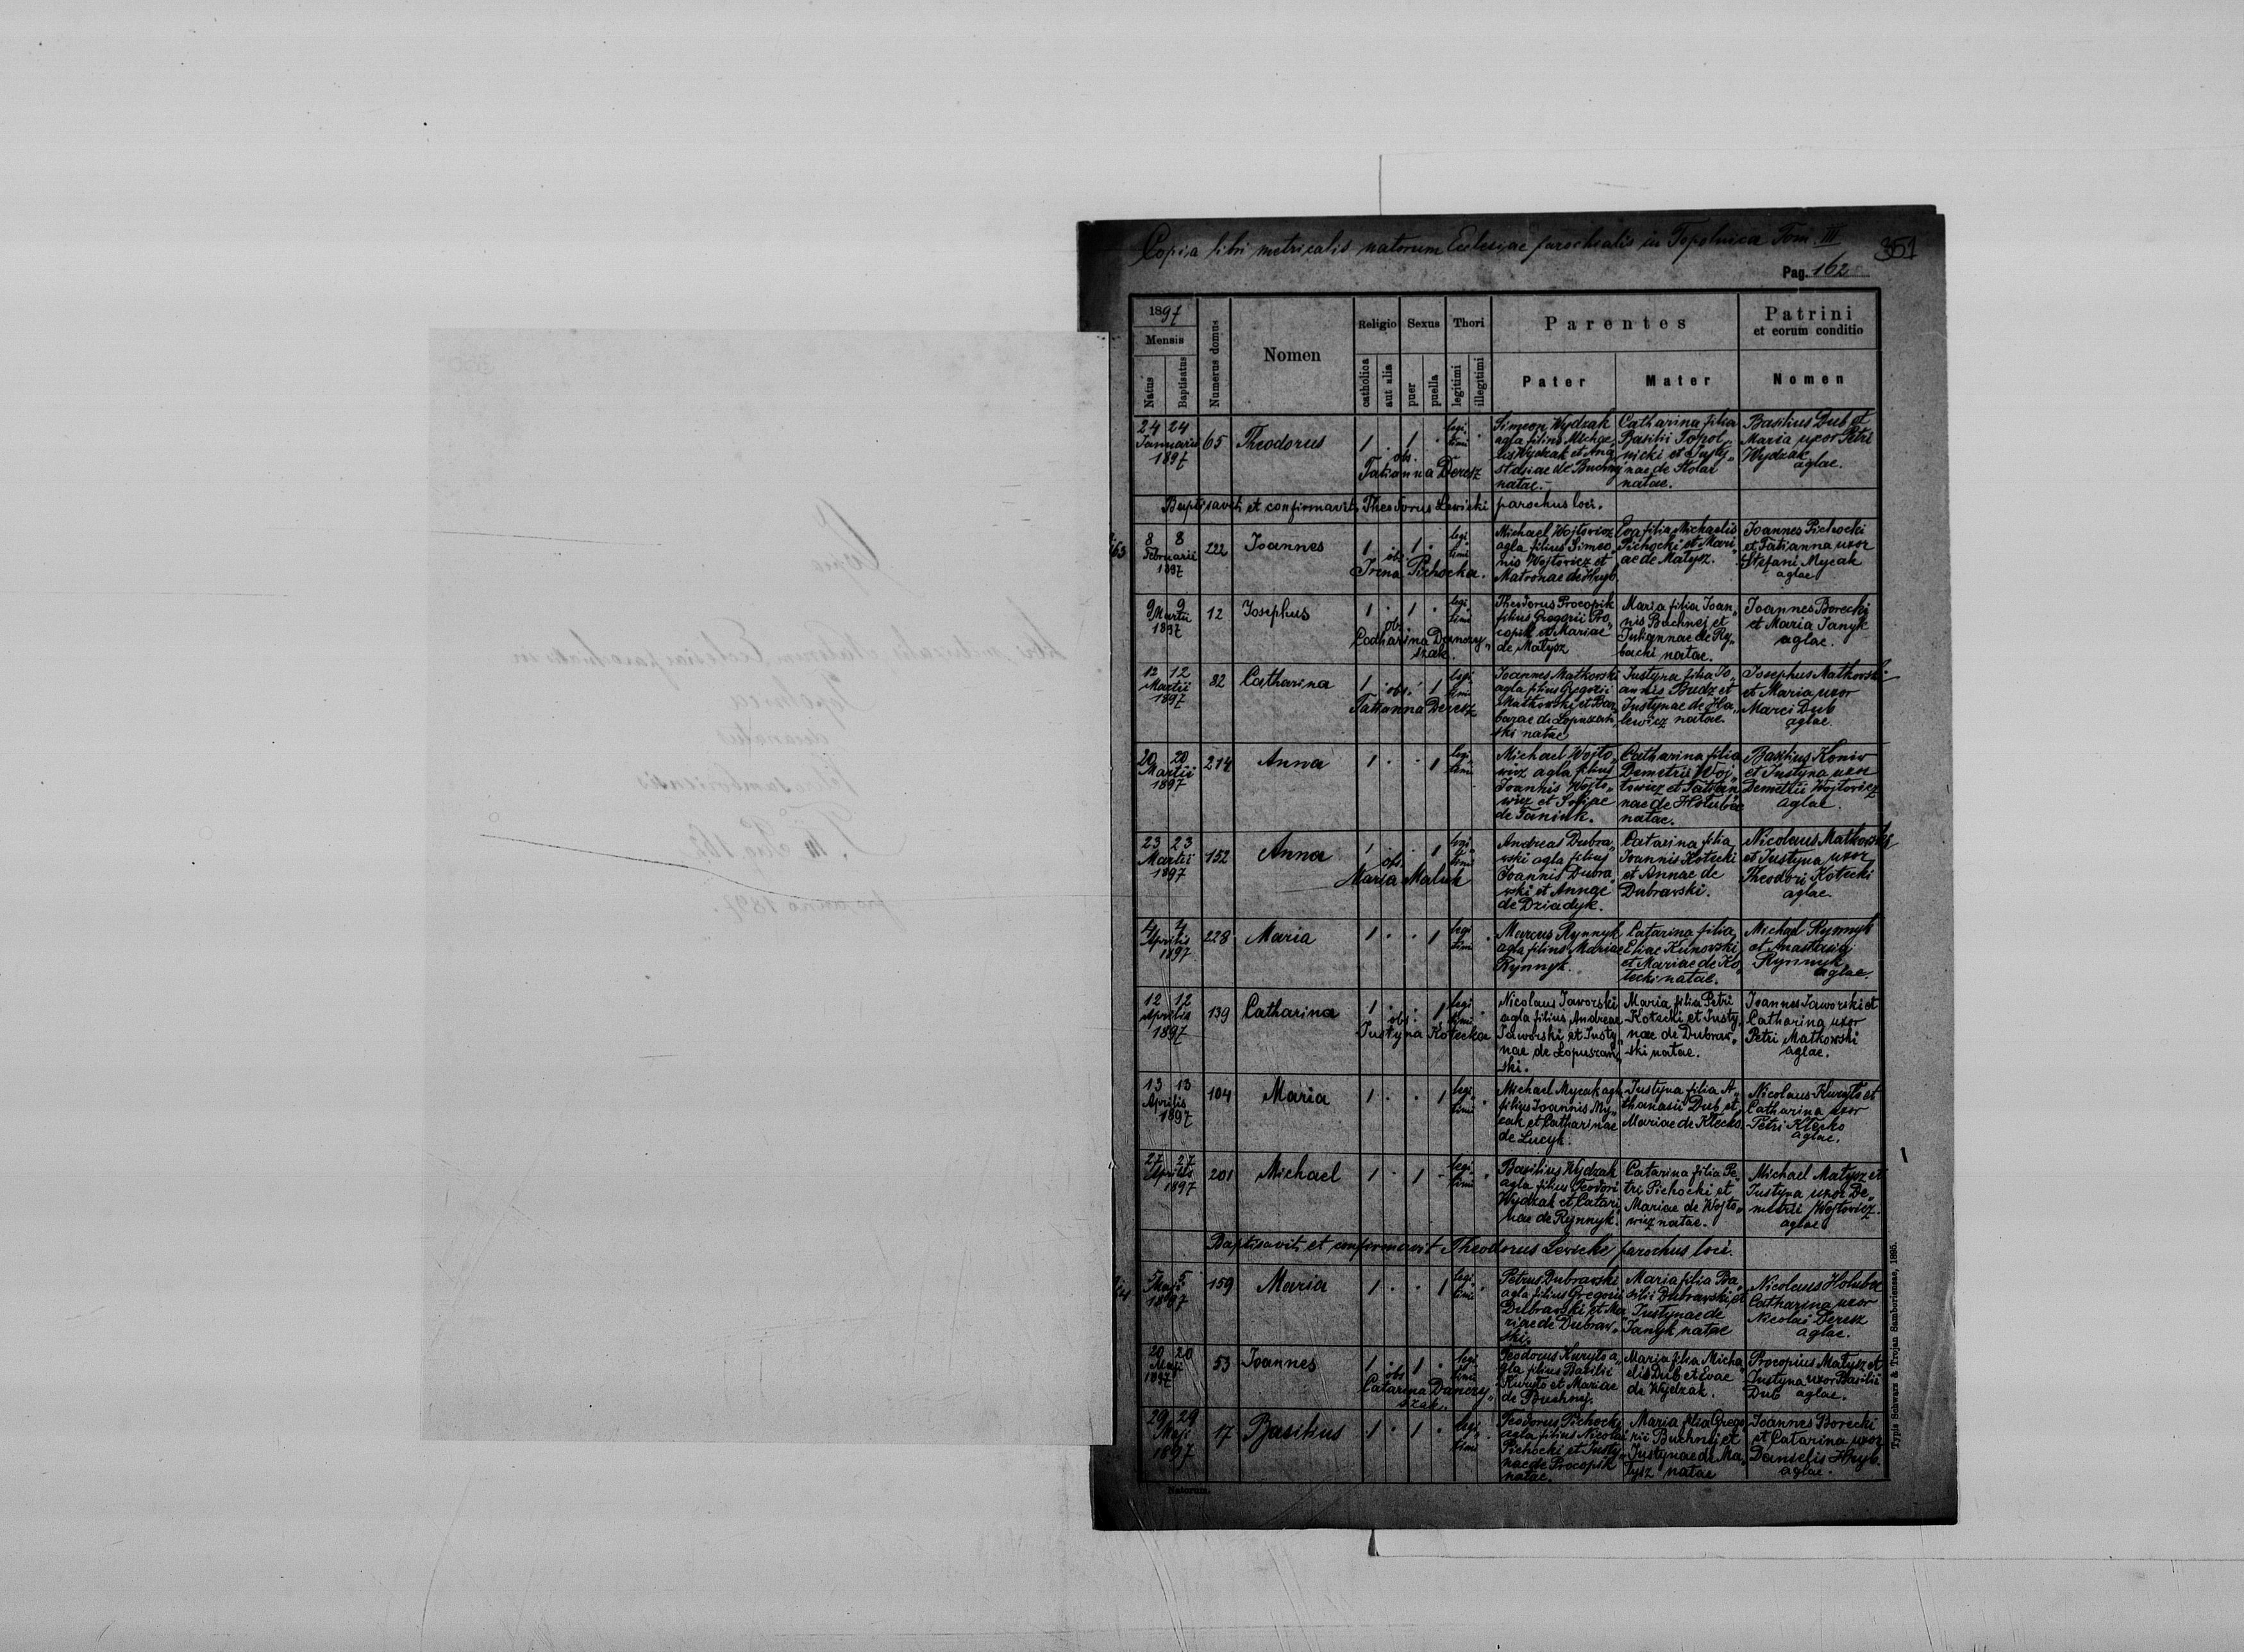 Copia libri metricalis natorum Ecclesiae parochialis in Topolnica Tom. III
351
Pag. 162
1897
Mensis
Natus
Baptisatus
Numerus domus
Nomen
Religio
catholica
aut alia
Sexus
puer
puella
Thori
legitimi
illegitimi
Parentes
Pater
Mater
Patrini
et eorum conditio
Nomen
24 24
Januarii
1897
65
Theodorus
1 . 1 .
legi„
timi
obs.
Tatianna Deresz
Simeon Wydzak
agla filius Michae„
lis Wydzak et Ana„
stasiae de Buchny
natae.
Catharina filia
Basilii Topol„
nicki et Justy„
nae de Stolar
natae.
Basilius Dub et
Maria uxor Petri
Wydzak
aglae.
Baptisavit et confirmavit Theodorus Lewicki parochus loci.
8 8
Februarii
1897
222
Joannes
1 . 1 .
legi„
timi
obs.
Irena Pichocka.
Michael Wojtowicz
agla filius Simeo„
nis Wojtowicz et
Matronae de Hryb
Eva filia Michaelis
Pichocki et Mari„
ae de Matysz.
Joannes Pichocki
et Tatianna uxor
Stefani Mycak
aglae
9 9
Martii
1897
12
Josephus
1 . 1 .
legi„
timi
obs.
Catharina Danczy„
szak.
Theodorus Procopik
filius Gregorii Pro„
copik et Mariae
de Matysz
Maria filia Joan„
nis Buchnej et
Juliannae de Ry„
backi natae.
Joannes Borecki
et Maria Janyk
aglae.
12 12
Martii
1897
82
Catharina
1 . . 1
legi„
timi
obs.
Tatianna Deresz
Joannes Matkowski
agla filius Gregorii
Matkowski et Bar„
barae de Lopuszan„
ski natae
Justyna filia Jo„
annis Budz et
Justynae de Ha„
lewicz natae.
Josephus Matkowski
et Maria uxor
Marci Dub
aglae.
20 20
Martii
1897
214
Anna
1 . . 1
legi„
timi
Michael Wojto„
wicz agla filius
Joannis Wojto„
wicz et Sofiae
de Faniuk.
Catharina filia
Demetrii Woj„
towicz et Tatian„
nae de Holubec
natae.
Basilius Koniw
et Justyna uxor
Demetrii Wojtowicz
aglae.
23 23
Martii
1897
152
Anna
1 . . 1
legi„
timi
obs.
Maria Maluk
Andreas Dubra„
wski agla filius
Joannis Dubra„
wski et Annae
de Dziadyk.
Catarina filia
Joannis Kotecki
et Annae de
Dubrawski.
Nicolaus Matkowski
et Justyna uxor
Theodori Kotecki
aglae.
4 4
Aprilis
1897
228
Maria
1 . . 1
legi„
timi
Marcus Rynnyk
agla filius Mariae
Rynnyk.
Catarina filia
Eliae Kunowski
et Mariae de Ko„
tecki natae.
Michael Rynnyk
et Anastasia
Rynnyk
aglae.
12 12
Aprilis
1897
139
Catharina
1 . . 1
legi„
timi
obs.
Justyna Kotecka
Nicolaus Jaworski
agla filius Andreae
Jaworski et Justy„
nae de Lopuszan„
ski.
Maria filia Petri
Kotecki et Justy„
nae de Dubraw„
ski natae.
Joannes Jaworski et
Catharina uxor
Petri Matkowski
aglae.
13 13
Aprilis
1897
104
Maria
1 . . 1
legi„
timi
Michael Mycak agla
filius Joannis My„
cak et Catharinae
de Lucyk.
Justyna filia A„
thanasii Dub et
Mariae de Klecko
Nicolaus Kuryło et
Catharina uxor
Petri Klecko
aglae.
27 27
Aprilis
1897
201
Michael
1 . 1 .
legi„
timi
Basilius Wydzak
agla filius Teodori
Wydzak et Catari„
nae de Rynnyk.
Catarina filia Pe„
tri Pichocki et
Mariae de Wojto„
wicz natae.
Michael Matysz et
Justyna uxor De„
metrii Wojtowicz.
aglae
Baptisavit et confirmavit Theodorus Lewicki parochus loci.
5 5
Maji
1897
159
Maria
1 . . 1
legi„
timi
Petrus Dubrawski
agla filius Gregorii
Dubrawski et Ma„
riae de Dubraw„
ski.
Maria filia Ba„
silii Dubrawski et
Justynae de
Janyk natae
Nicolaus Holubec
Catharina uxor
Nicolai Deresz
aglae.
20 20
Maji
1897
53
Joannes
1 . 1 .
legi„
timi
obs.
Catarina Danczy„
szak.
Teodorus Kuryło a„
gla filius Basilii
Kuryło et Mariae
de Buchnij.
Maria filia Micha„
elis Dub et Evae
de Wydzak.
Procopius Matysz et
Justyna uxor Basilii
Dub aglae.
29 29
Maji
1897
17
Basilius
1 . 1 .
legi„
timi
Teodorus Pichocki
agla filius Nicolai
Pichocki et Justy„
nae de Procopik
natae.
Maria filia Grego„
rii Buchnij et
Justynae de Ma„
tysz natae
Joannes Borecki
et Catarina uxor
Danielis Hryb.
aglae.
Natorum.
Typis Schwarz & Trojan Samboriensae, 1895.